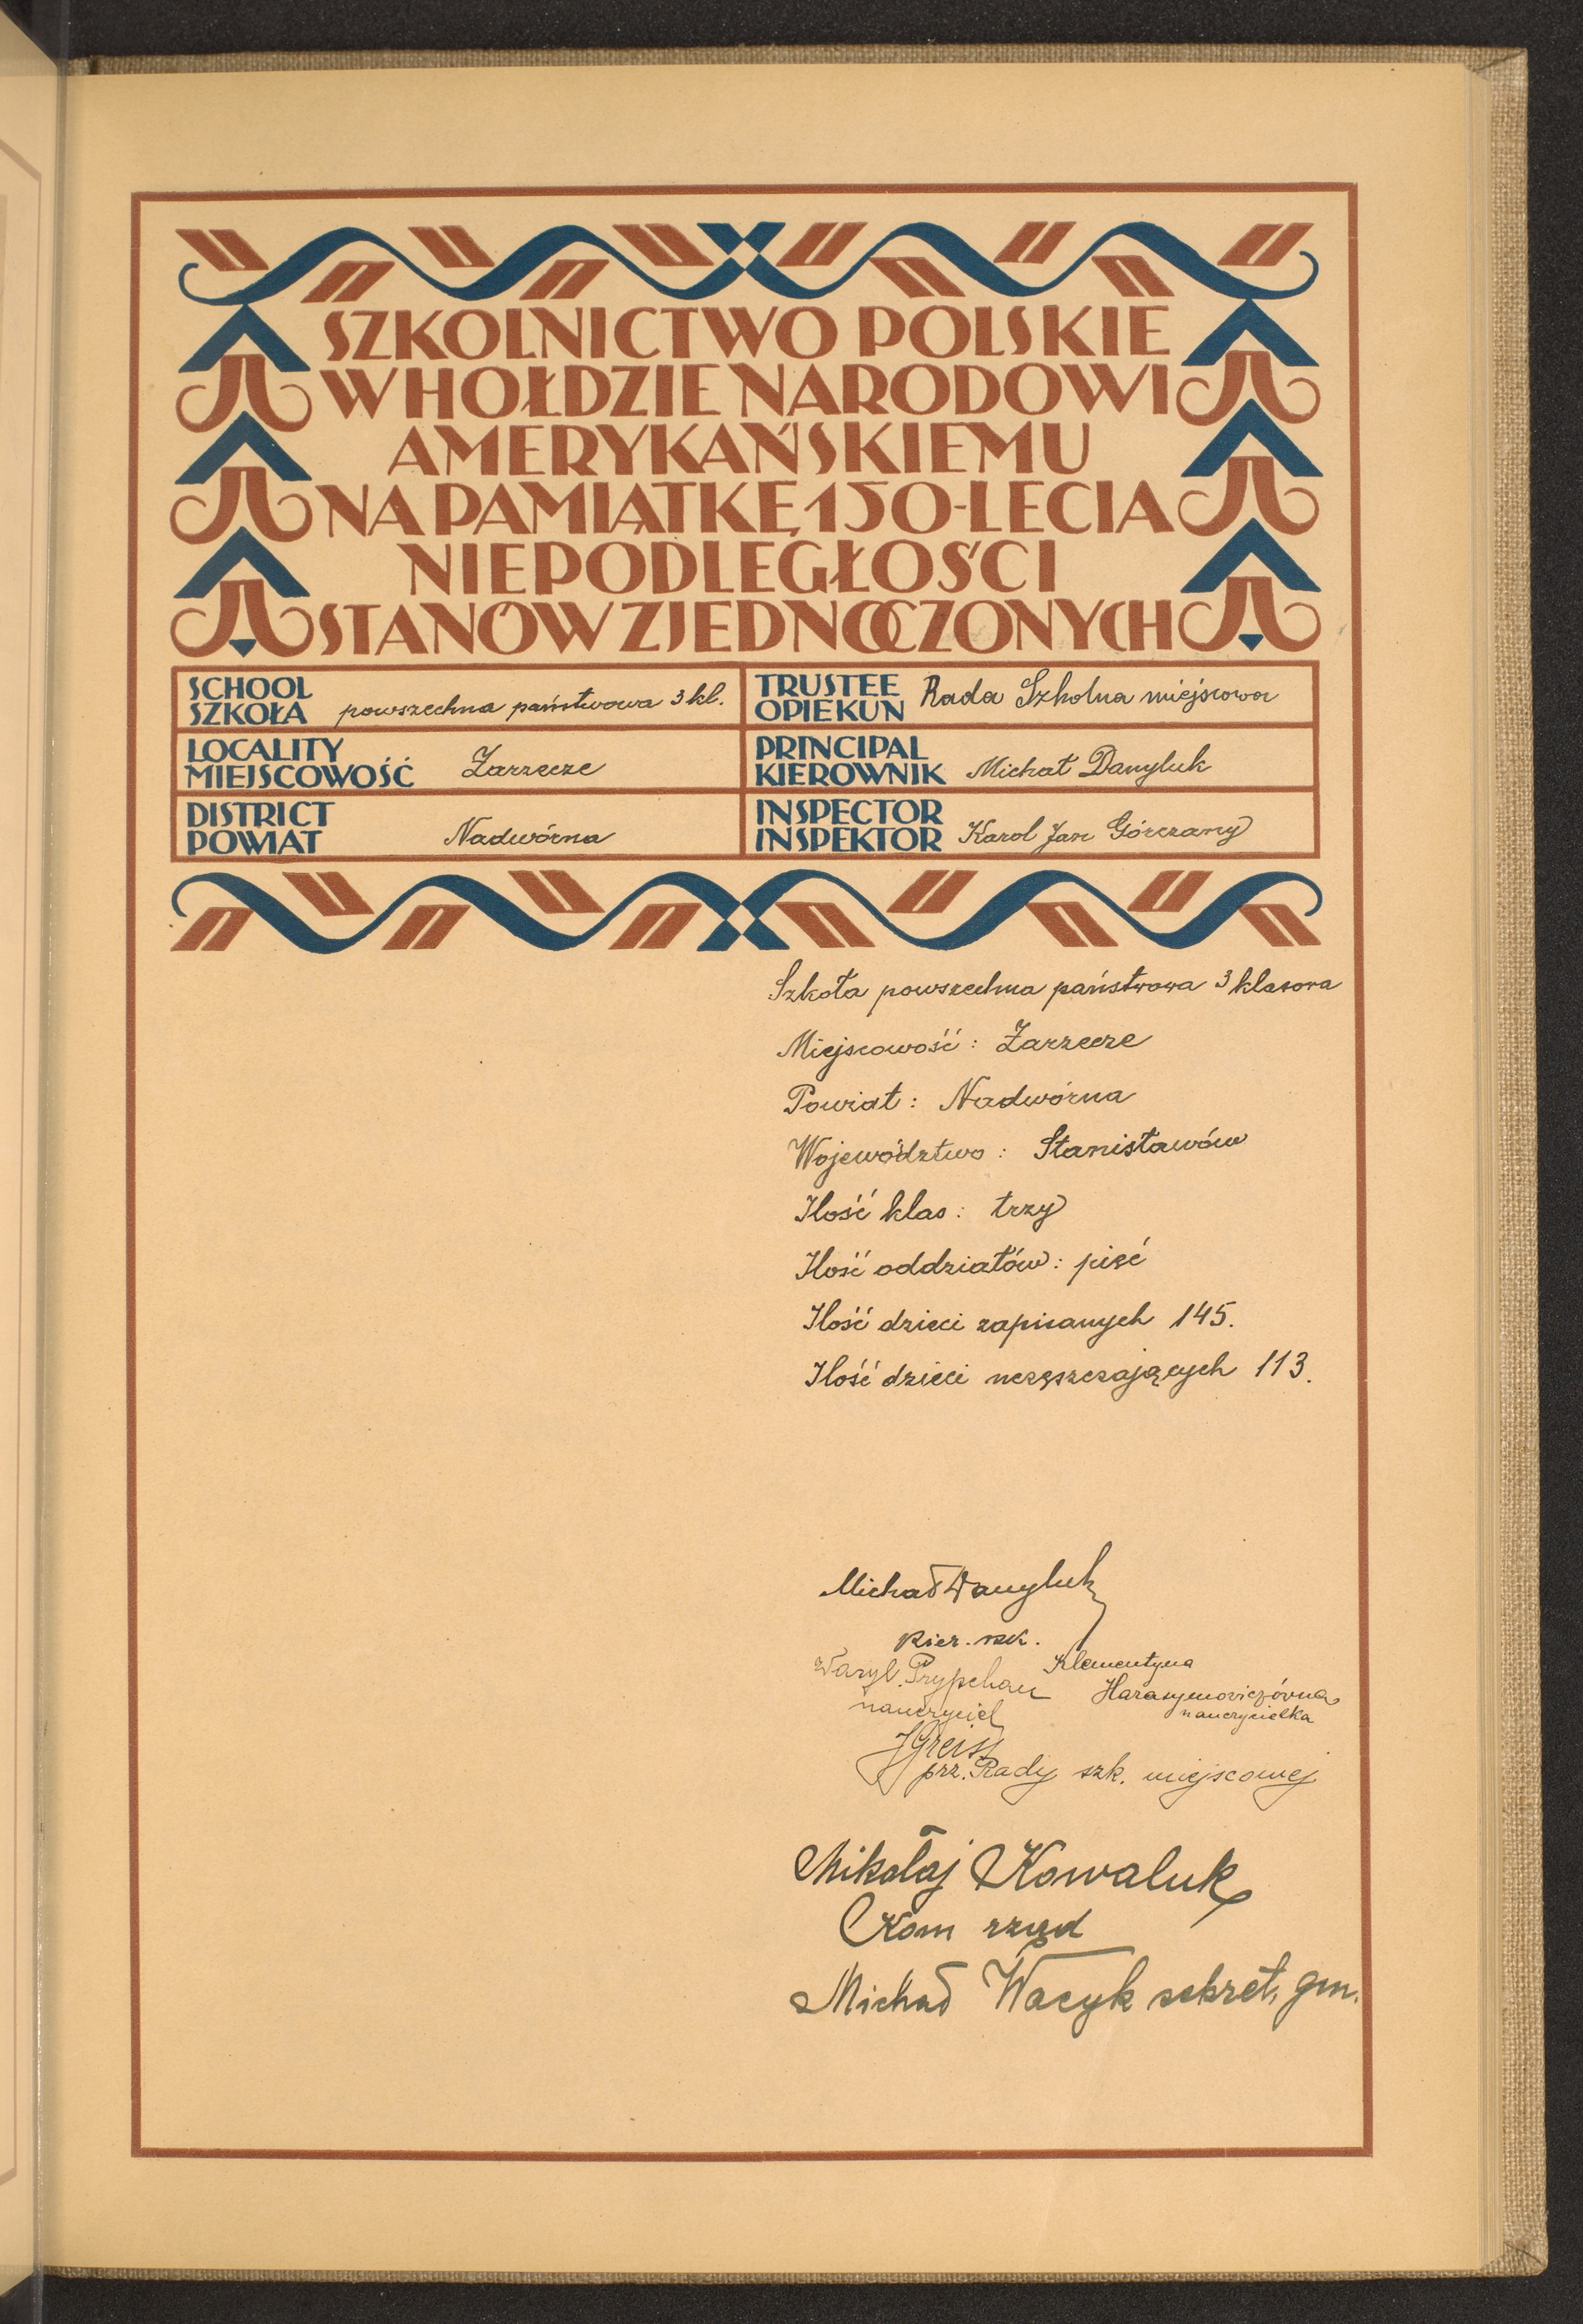 SZKOLNICTWO POLSKIE
W HOŁDZIE NARODOWI
AMERYKAŃSKIEMU
NA PAMIĄTKĘ 150-LECIA
NIEPODLEGŁOŚCI
STANÓW ZJEDNOCZONYCH
SCHOOL
SZKOŁA powszechna państwowa 3 kl.
TRUSTEE
OPIEKUN Rada Szkolna miejscowa
LOCALITY
MIEJSCOWOŚĆ Zarzecze
PRINCIPAL
KIEROWNIK Michał Danyluk
DISTRICT
POWIAT Nadwórna
INSPECTOR
INSPEKTOR Karol Jan Górczany
Szkoła powszechna państwowa 3 klasowa
Miejscowość: Zarzecze
Powiat: Nadwórna
Województwo: Stanisławów
Ilość klas: trzy
Ilość oddziałów: pięć
Ilość dzieci zapisanych 145.
Ilość dzieci uczęszczających 113.
Michał Danyluk
Kier. szk.
Wasyl Prypchan
nauczyciel
Klementyna
Harasymowiczówna
nauczycielka
JGreiss
prz. Rady szk. miejscowej
Mikołaj Kowaluk
Kom rząd
Michał Wacyk sekret. gm.